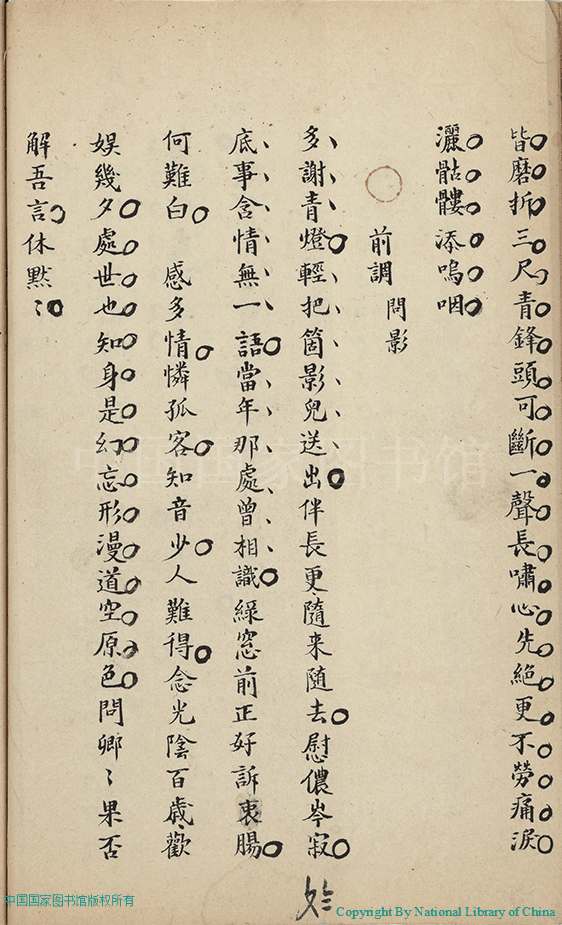 皆磨折三尺青鋒頭可斷一聲長嘯心先絕更不勞痛淚
灑骷髏添嗚咽
前調 問影
多謝青燈輕把箇影兒送出伴長更隨来随去慰儂岑寂
底事含情無一語當年那處曾相識綠窓前正好訴衷腸
何難白 感多情憐孤客知音少人難得念光陰百歲歡
娛幾夕處世也知身是幻忘形漫道空原色問卿〻果否
解吾言休默〻
中国国家图书馆
中国国家图书馆版权所有
Copyright By National Library of China